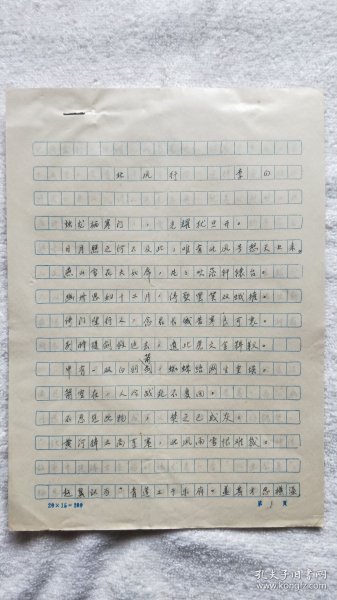 北风行 李白
烛龙栖寒门，光耀犹旦开。
日月照之何不及此，唯有北风号怒天上来。
燕山雪花大如席，片片吹落轩辕台。
幽州思妇十二月，停歌罢笑双蛾摧。
倚门望行人，念君长城苦寒良可哀。
别时提剑救边去，遗此虎文金鞞靫。
中有一双白羽箭，蜘蛛结网生尘埃。
箭空在，人今战死不复回。
不忍见此物，焚之已成灰。
黄河捧土尚可塞，北风雨雪恨难裁。
20×15=300 第1页
孔夫子旧书网